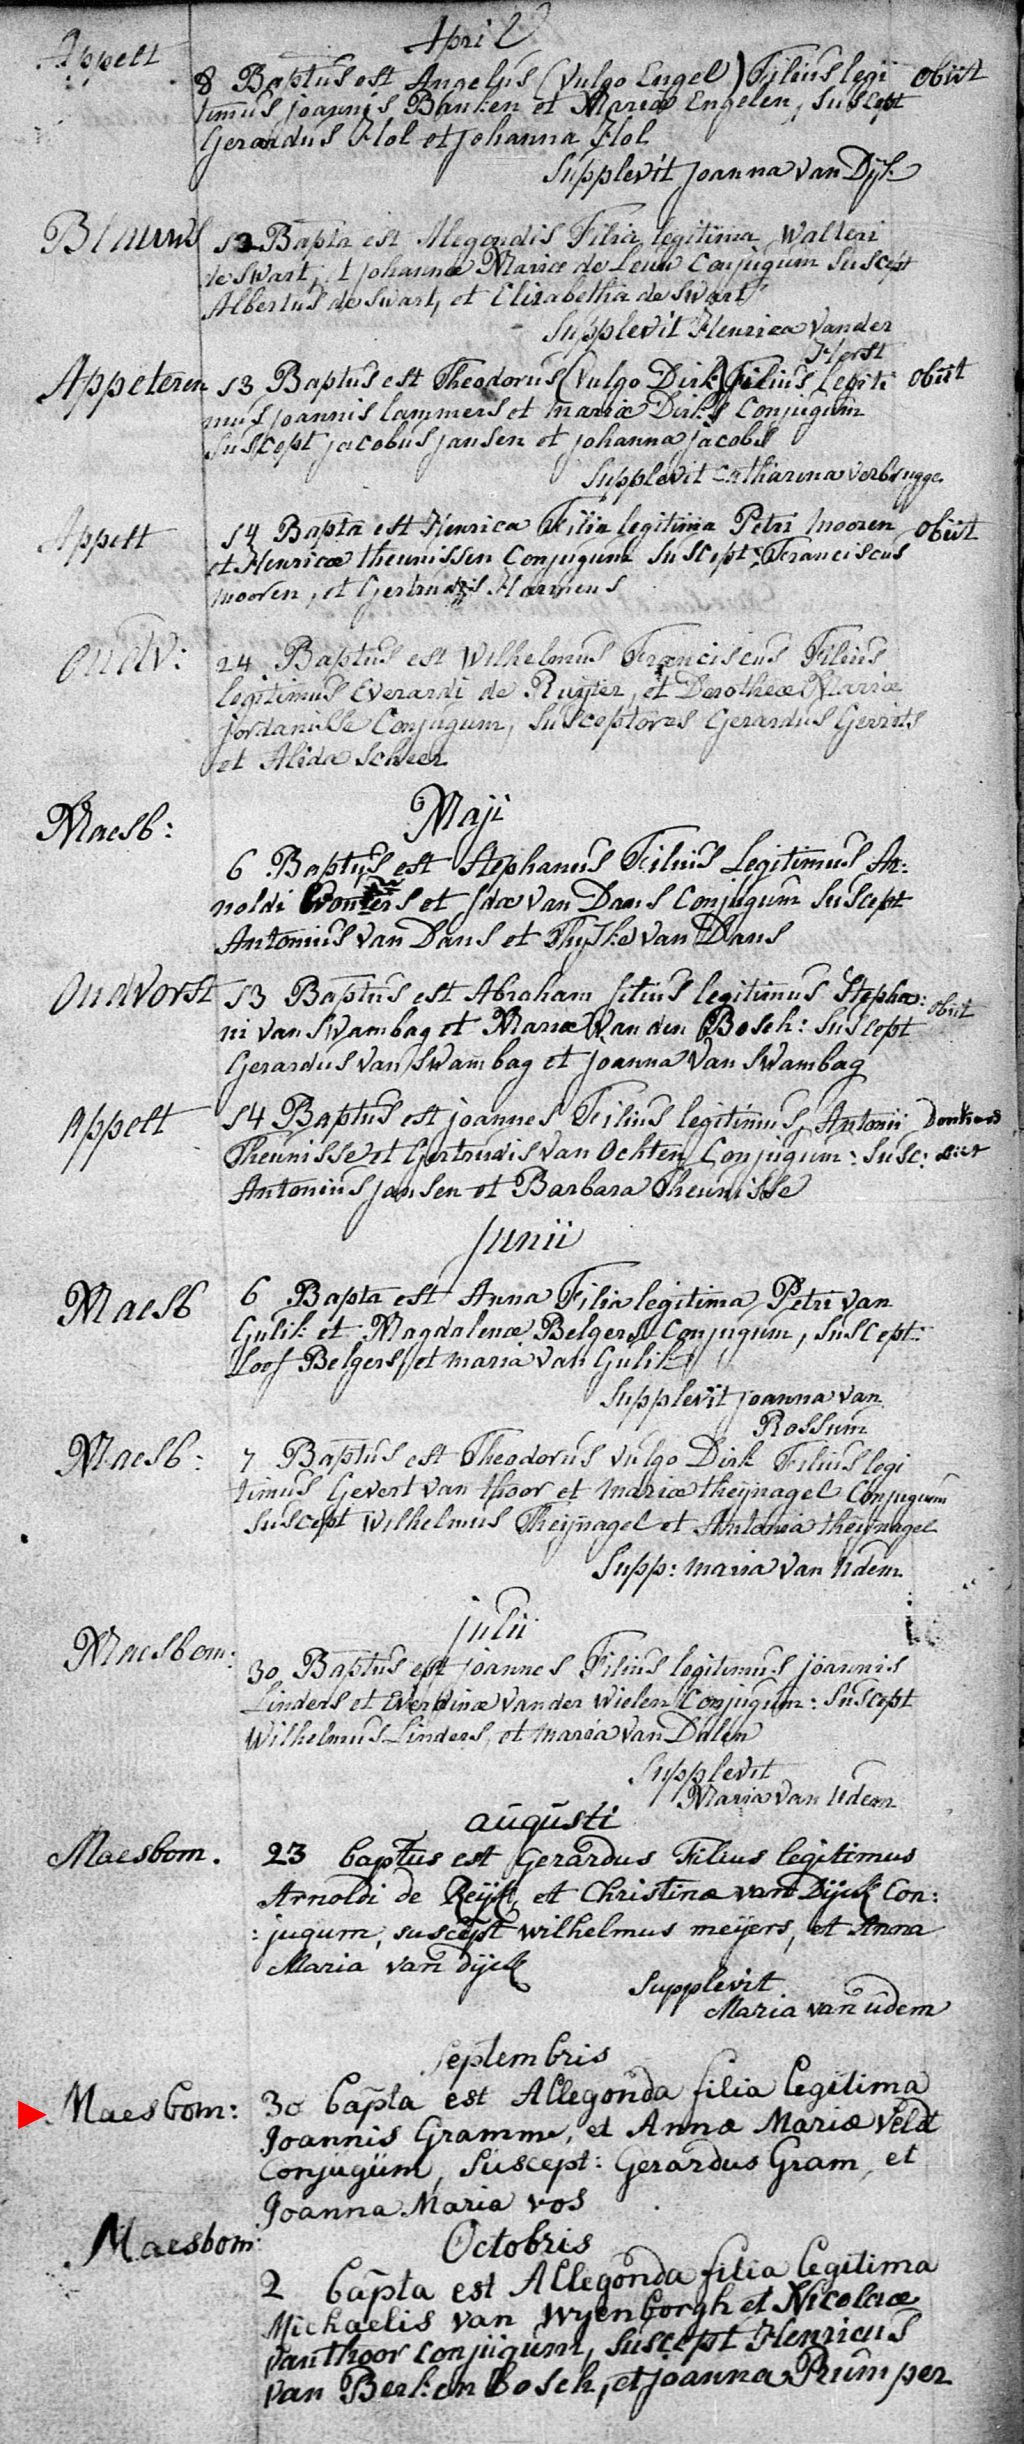 April
Appelt
8 Baptus est Angelus (vulgo Engel) Filius legi obiit
timus joannis Banken et Mariæ Engelen, Suscept
Gerardus Hol et johanna Hol
Supplevit joanna van Dijk
13 Bapta est Alegondis Filia legitima Walteri
de Swart, t johannæ Mariæ de Leuw Conjugum Suscept
Albertus de Swart, et Elizabetha de Swart
Supplevit Henrica vander
Horst
Appeteren 13 Baptus est Theodorus (vulgo Dirk) Filius Legiti obiit
mus joannis lammers et mariæ Dirks Conjugum
Suscept jacobus jansen et johanna jacobs
Supplevit catharina verbrugge
Appelt 14 Bapta est Henrica Filia legitima Petri mooren obiit
et Henricæ theunissen Conjugum Suscept: Franciscus
mooren, et Gertrudis Harmens
oudw: 24 Baptus est Wilhelmus Franciscus Filius
legitimus Everardi de Ruyter, et Dorotheæ Mariæ
jordanisse Conjugum, Susceptores Gerardus Gerrits
et Alida Scheer
Maji
Maesb:
6 Baptus est Stephanus Filius Legitimus Ar:
noldi Wouters et Idæ van Dans Conjugum Suscept
Antonius van Dans et Thijske van Dans
Oudvorst 13 Baptus est Abraham filius legitimus Stepha: obiit
ni van Swambag et Mariæ van den Bosch: Suscept
Gerardus van Swambag et joanna van Swambag
Appelt 14 Baptus est joannes Filius legitimus Antonii
Theunisse et Gertrudis van Ochten Conjugum: Susc:
Antonius jansen et Barbara Theunisse
Junii
Maesb 6 Bapta est Anna Filia legitima Petri van
Gulik et Magdalenæ Belgers Conjugum, Suscept:
Loof Belgers et maria van Gulik
Supplevit joanna van
Rossum
Maesb: 7 Baptus est Theodorus vulgo Dirk Filius legi
timus Gevert van thoor et mariæ theijnagel Conjugum
Suscept Wilhelmus Theijnagel et Antonia theijnagel
Supp: maria van Udem
julii
Maesbom: 30 Baptus est joannes Filius legitimus joannis
Linders et Everdinæ vander Wielen Conjugum: Suscept
Wilhelmus Linders, et maria van Dalen
Supplevit
Maria van Udem
augusti
Maesbom. 23 baptus est Gerardus Filius legitimus
Arnoldi de Reijk, et Christinæ van Dijck Con:
:jugum, suscept wilhelmus meijers, et Anna
Maria van dijck
Supplevit
Maria van udem
Septembris
Maesbom: 30 bapta est Allegonda filia legitima
Joannis Gramme, et Annæ Mariæ Veldt
Conjugum, Suscept: Gerardus Gram, et
Joanna Maria vos
Octobris
Maesbom:
2 bapta est Allegonda filia legitima
Michaelis van Wyenborgh et Nicolaæ
van thoor conjugum, Suscept Henricus
van Berkenbosch, et joanna Prumper